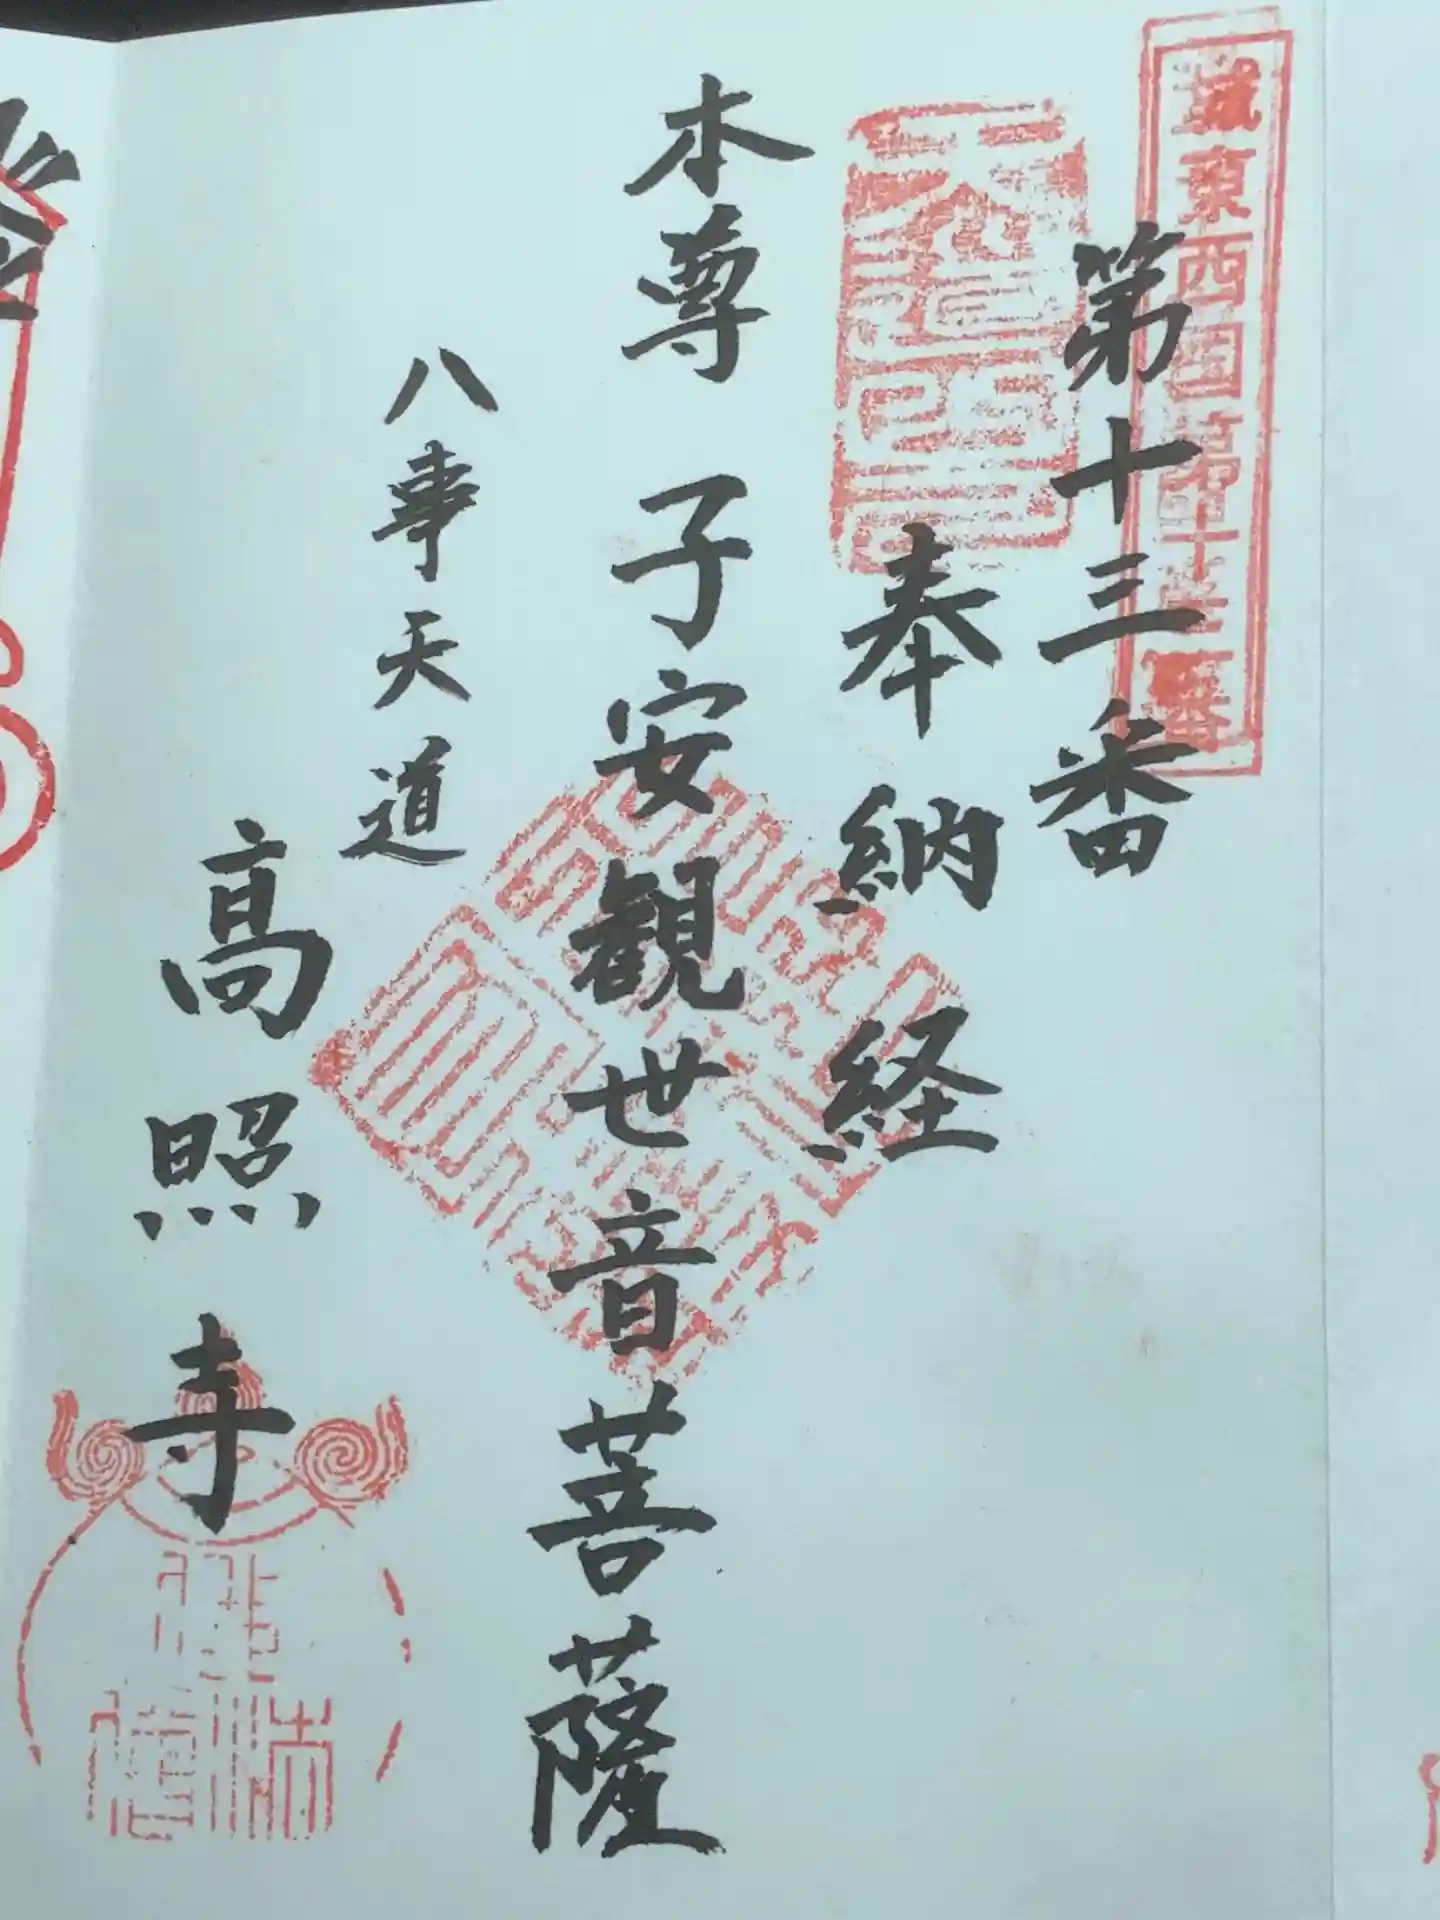 城東西国第十三番
第十三番
奉納経
本尊 子安観世音菩薩
八事天道
高照寺